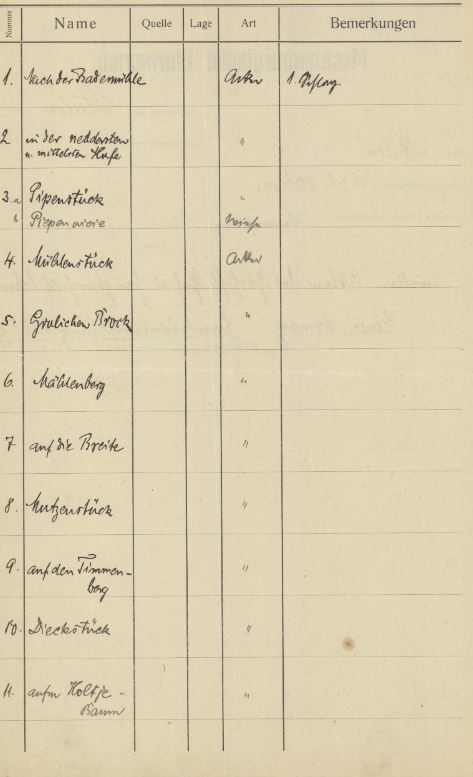 Nummer Name Quelle Lage Art Bemerkungen
1. Nach der Bademühle Acker 1. Schlag.
2 in der neddersten "
u. mittelsten Hufe
3.a Pipenstück "
b Piepenwiese Wiese
4. Mühlenstück Acker
5. Grulichen Brock "
6. Mählenberg "
7 auf die Breite "
8. Mutzenstück "
9. auf den Timmen- "
berg
10. Dieckstück "
11. aufm Holtje- "
Baum